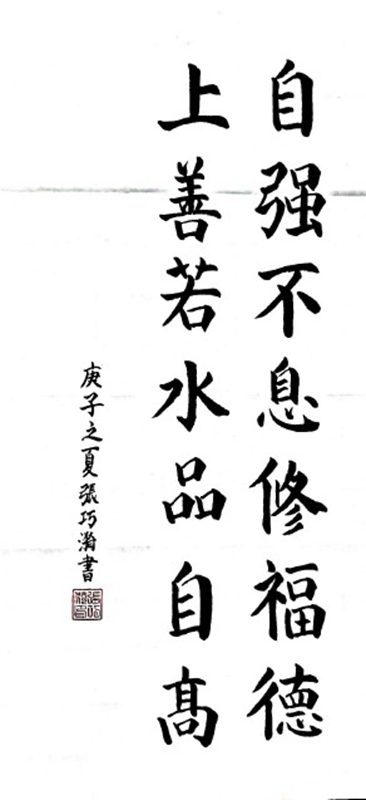 自强不息修福德
上善若水品自髙
庚子之夏張巧瀚書